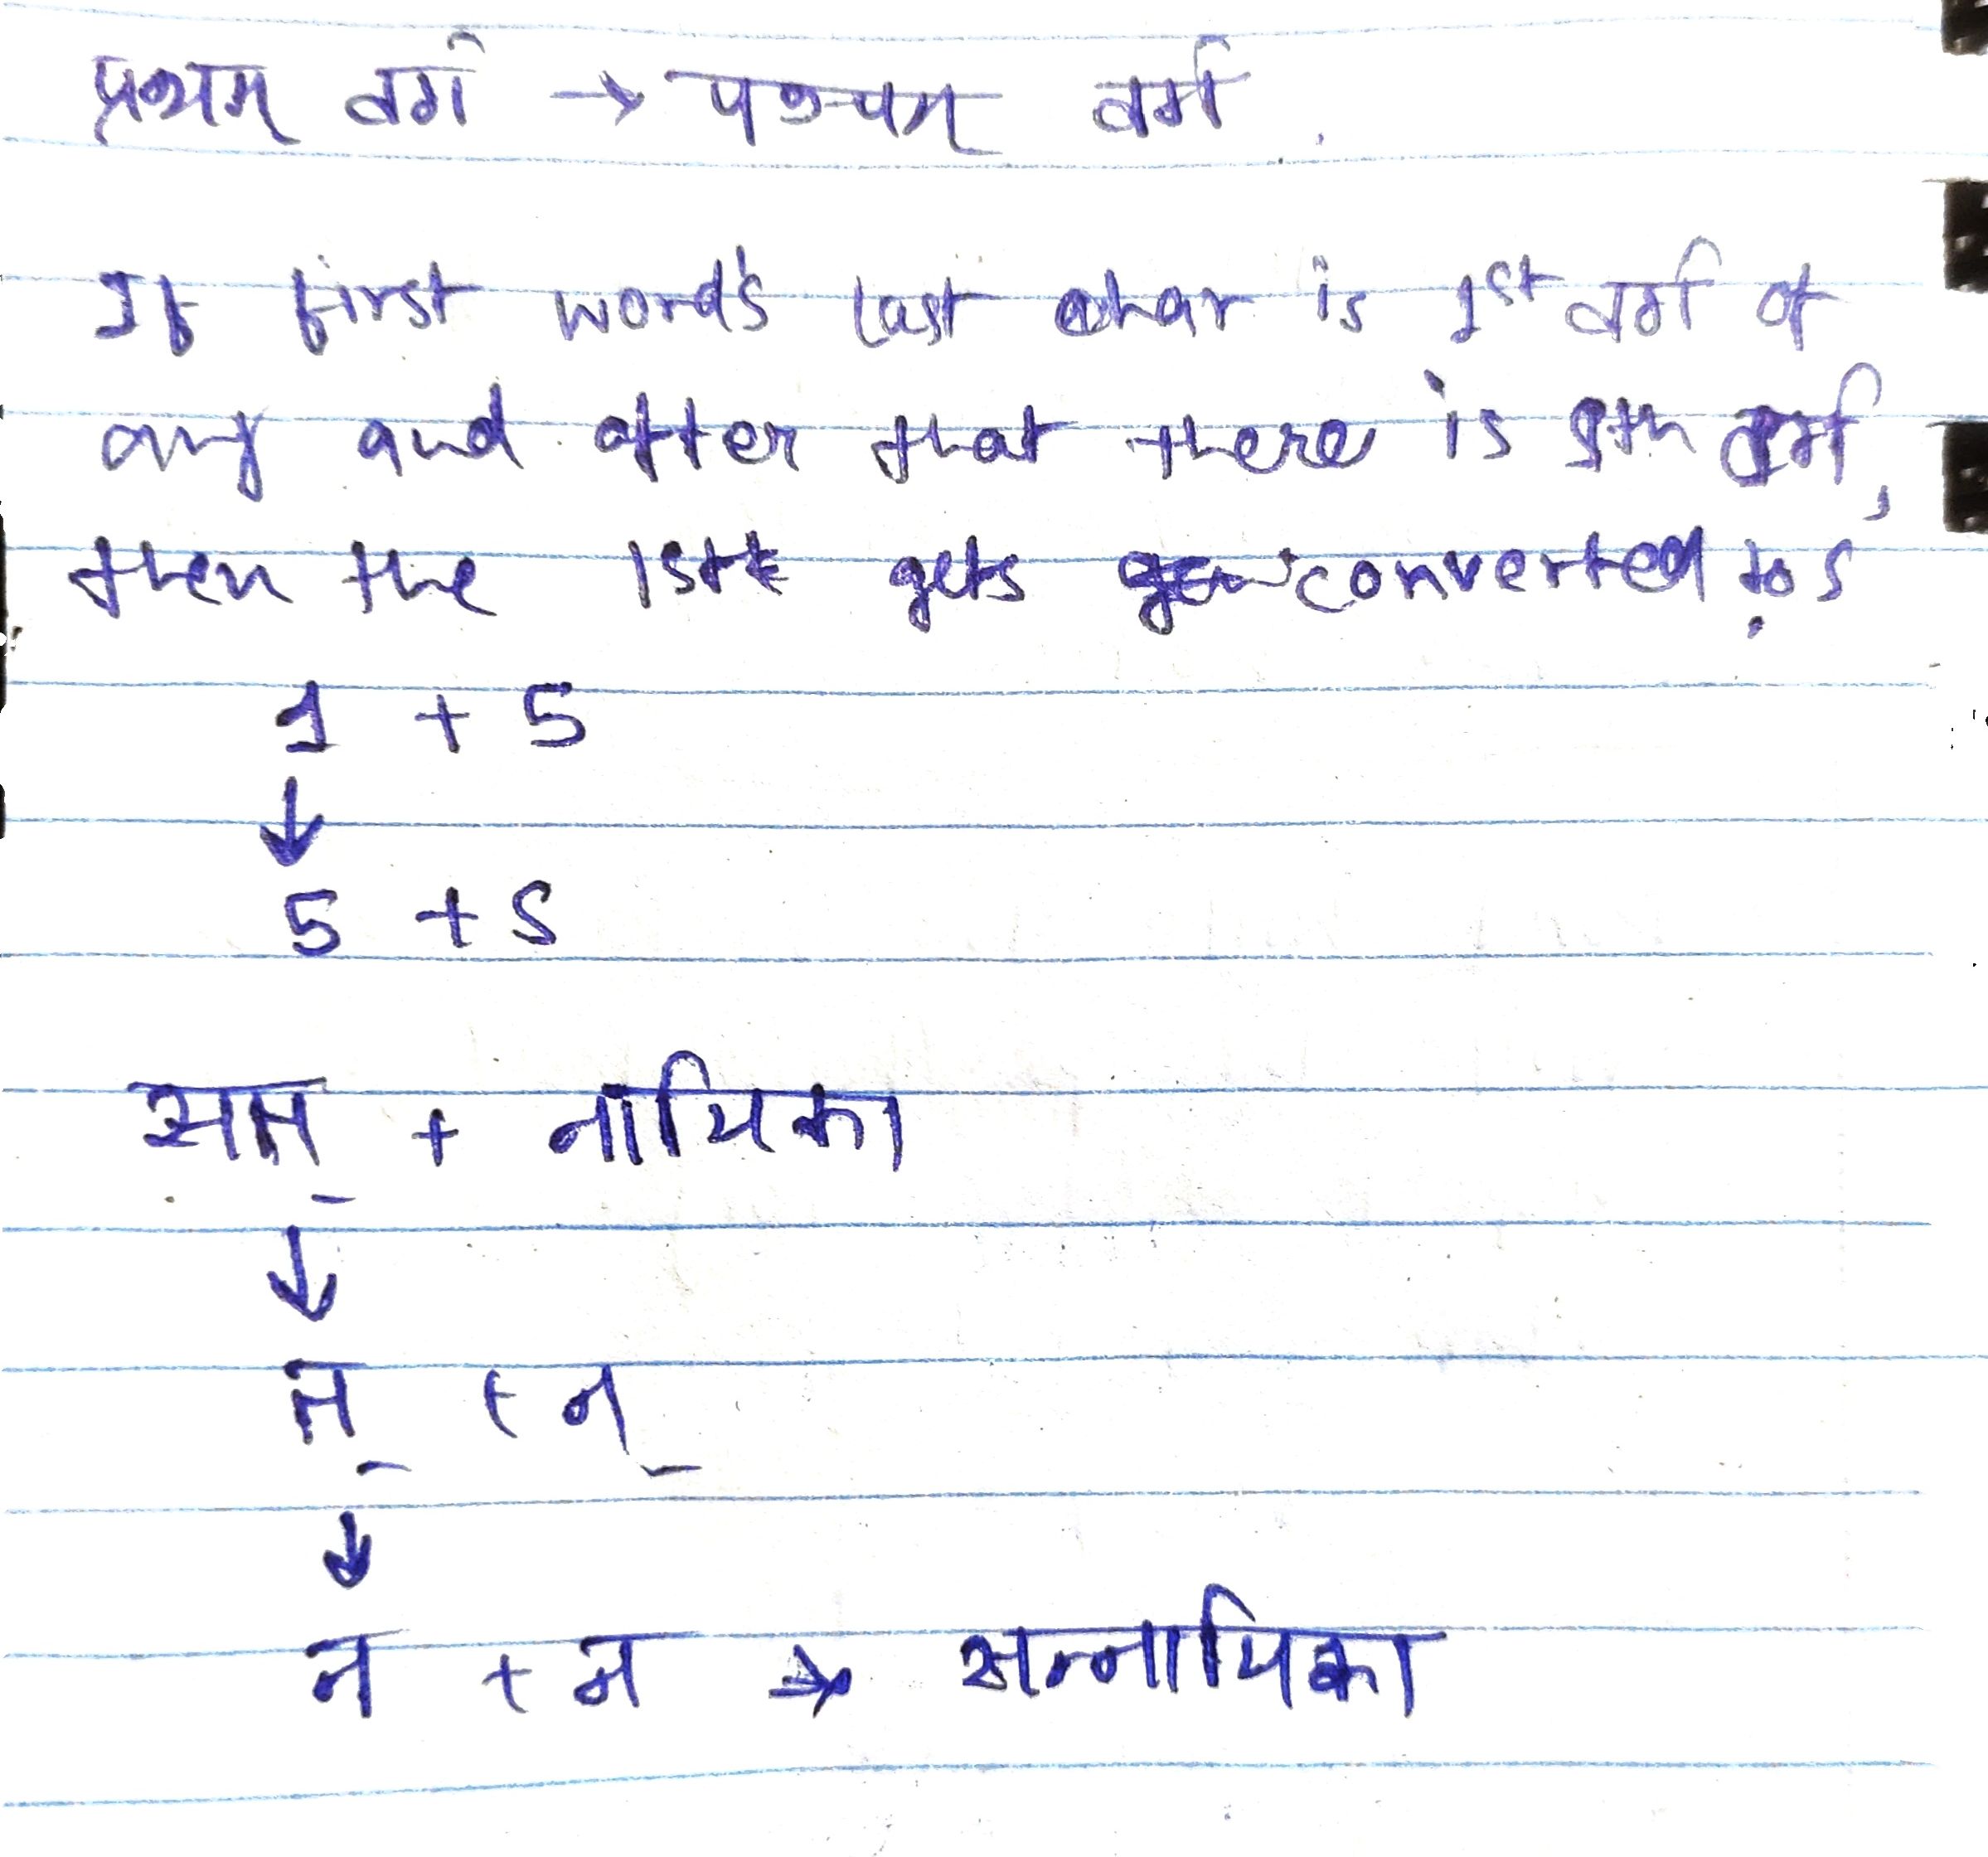 प्रथम वर्ग → पञ्चम वर्ग
If first word's last char is 1st वर्ग of
any and after that there is 5th वर्ग,
then the 1st gets converted to 5
1 + 5
↓
5 + 5
सत् + नायिका
↓
त् + न्
↓
न + न → सन्नायिका